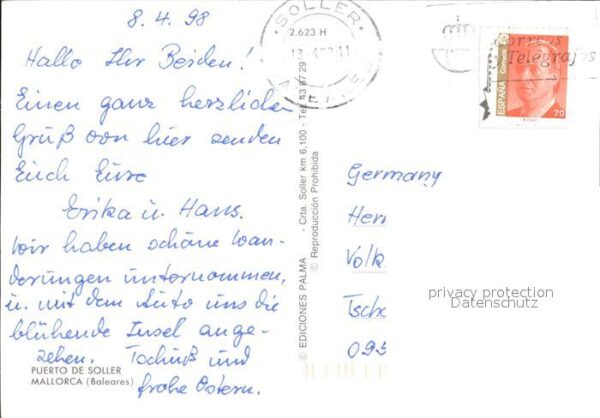 8.4.98
Hallo Ihr Beiden!
Einen ganz herzlichen
Gruß von hier senden
Euch Eure
Erika u. Hans.
Wir haben schöne Wan-
derungen unternommen,
u. mit dem Auto uns die
blühende Insel ange-
sehen. Tschüß und
frohe Ostern.
PUERTO DE SOLLER
MALLORCA (Baleares)
© EDICIONES PALMA - Crta. Soller km 6,100 - Tel.
© Reproducción Prohibida
SOLLER
2.623 H
Correos
Telégrafos
ESPAÑA
70
Germany
Herr
Volk
Tsch
privacy protection
Datenschutz